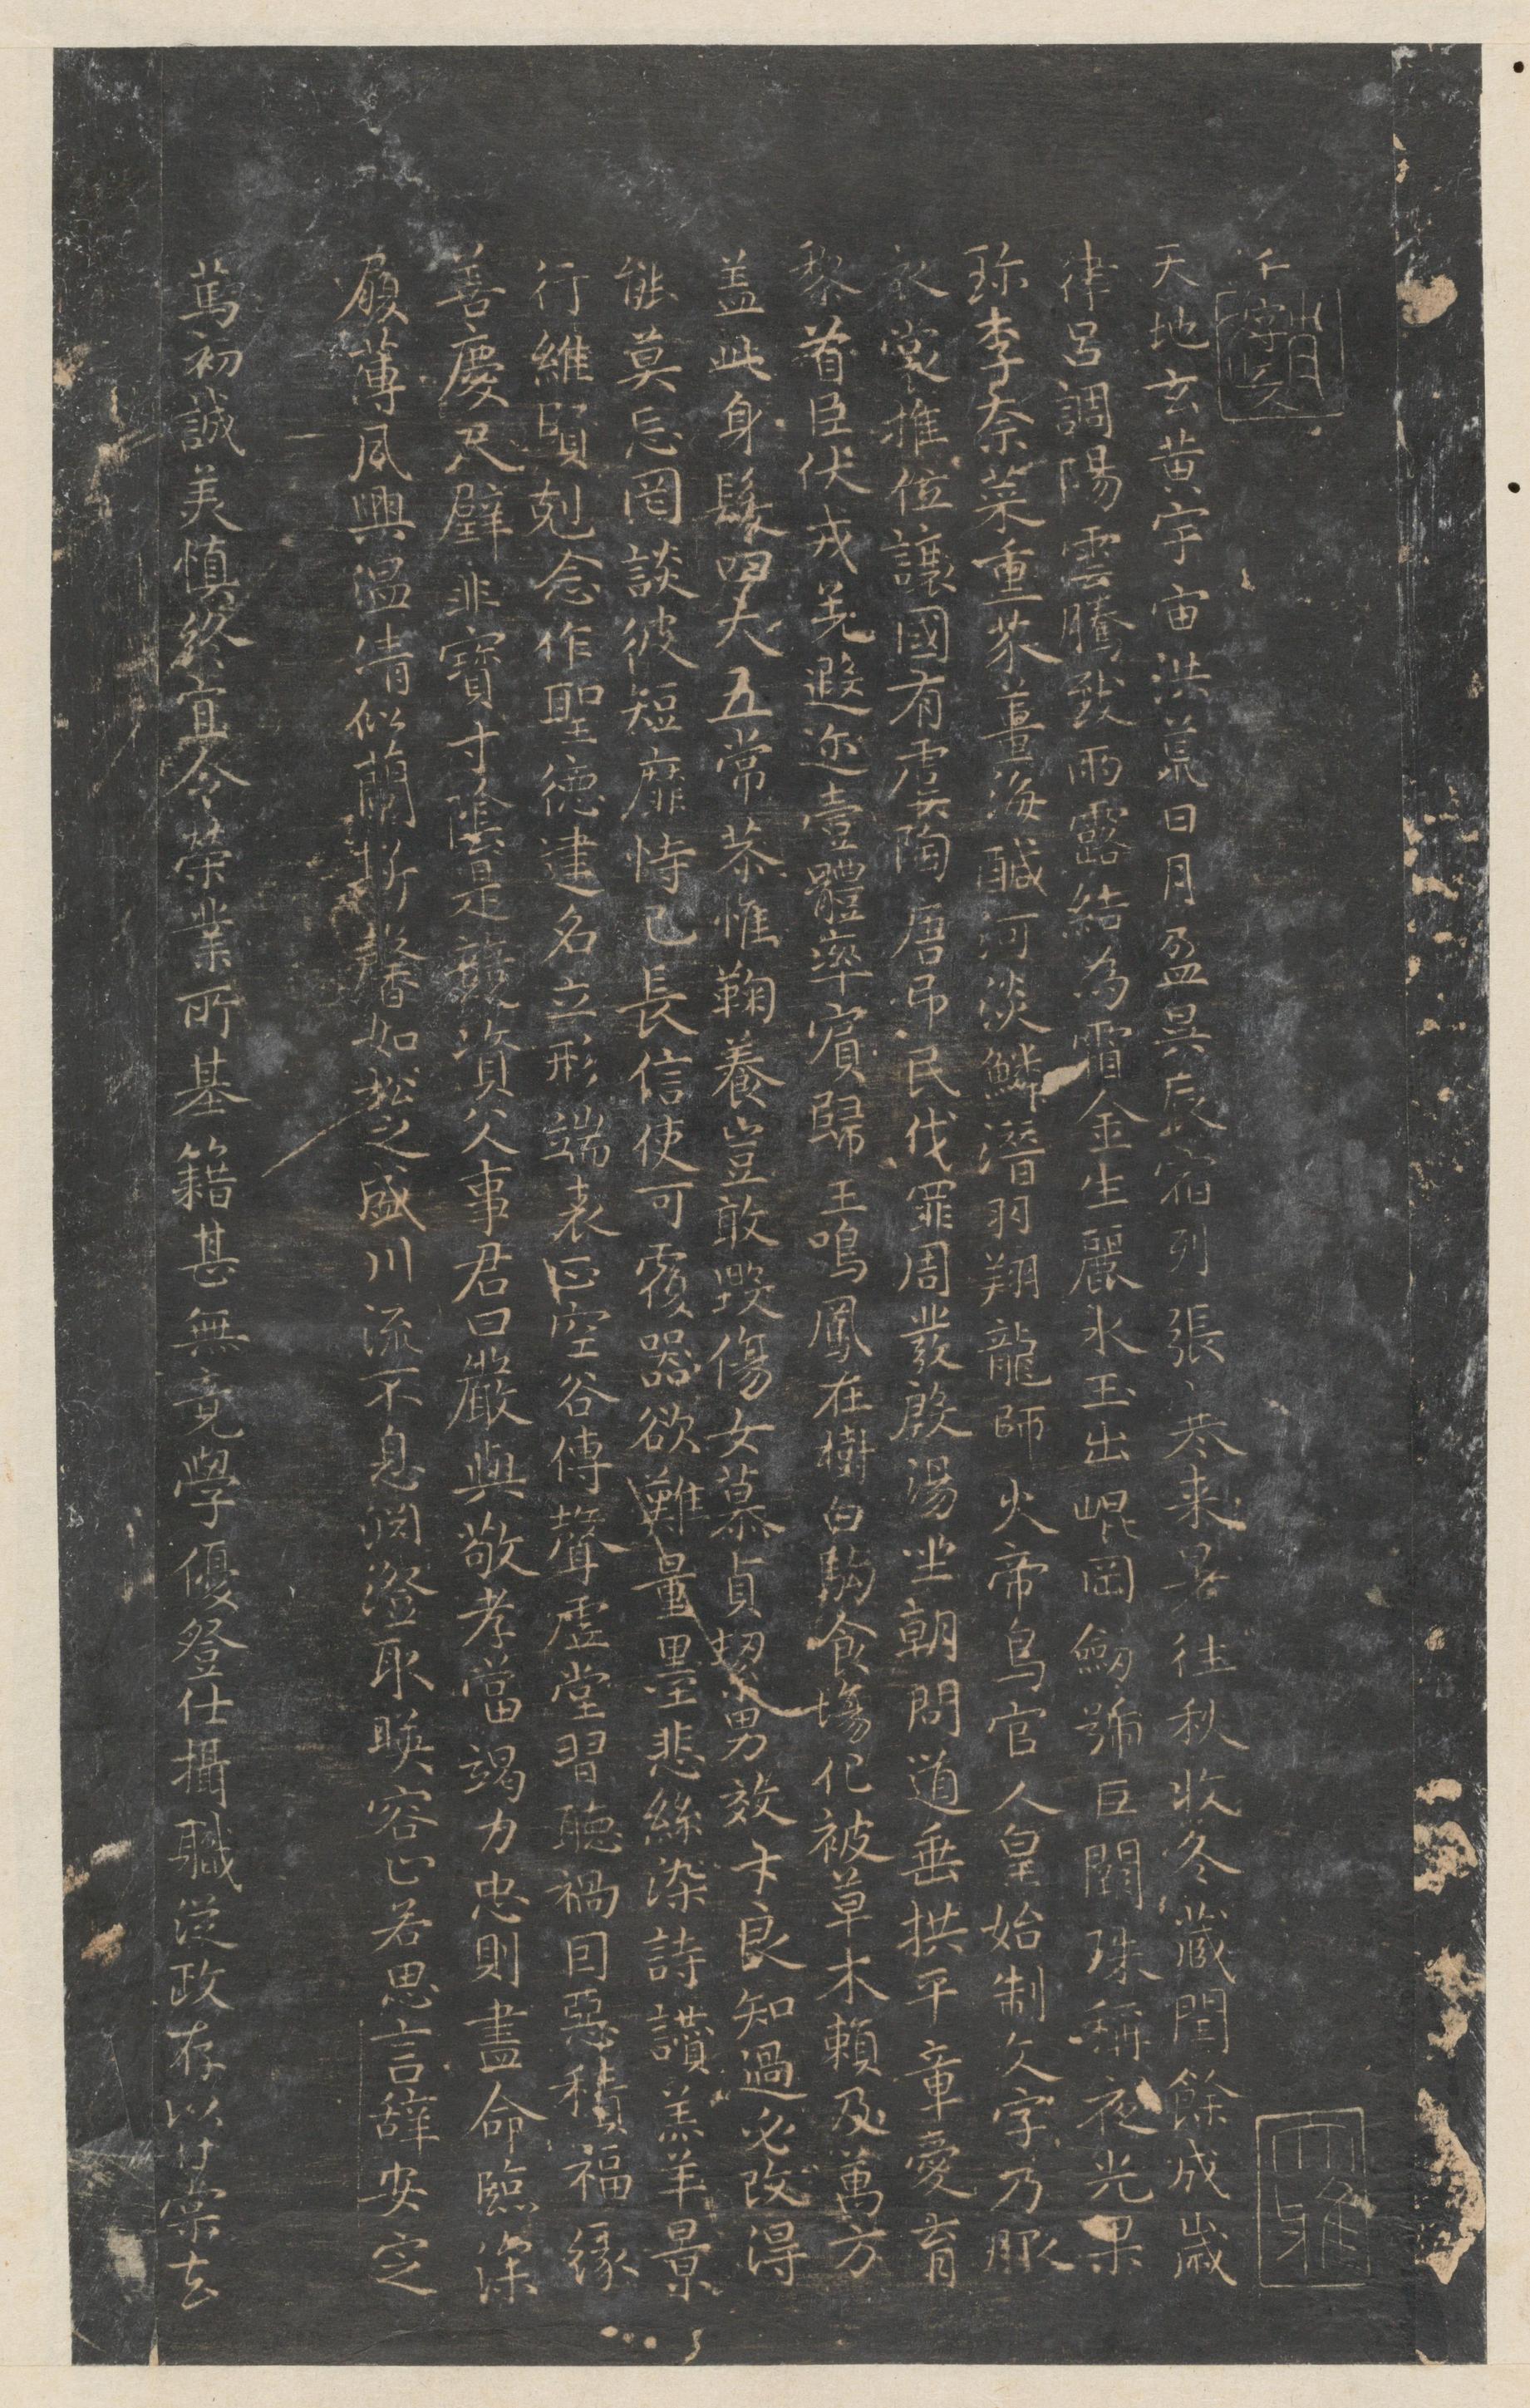 千字文
天地玄黄宇宙洪荒日月盈昃辰宿列張寒来暑往秋收冬蔵閏餘成歲
律呂調陽雲騰致雨露結為霜金生麗水玉出崐岡劒號巨闕珠稱夜光果
珎李柰菜重芥薑海醎河淡鱗潛羽翔龍師火帝鳥官人皇始制文字乃服
衣裳推位讓國有虞陶唐吊民伐罪周發殷湯坐朝問道垂拱平章愛育
黎首臣伏戎羌遐迩壹體率賓歸王鳴鳳在樹白駒食場化被草木賴及萬方
盖此身髮四大五常恭惟鞠養豈敢毀傷女慕貞絜男效才良知過必改得
能莫忘罔談彼短靡恃己長信使可覆器欲難量墨悲絲染詩讚羔羊景
行維賢剋念作聖德建名立形端表正空谷傳聲虛堂習聽禍因惡積福緣
善慶尺璧非寶寸陰是競資父事君曰嚴與敬孝當竭力忠則盡命臨深
履薄夙興温凊似蘭斯馨如松之盛川流不息淵澄取暎容止若思言辭安定
篤初誠美慎終宜令榮業所基籍甚無竟學優登仕攝職從政存以甘棠去